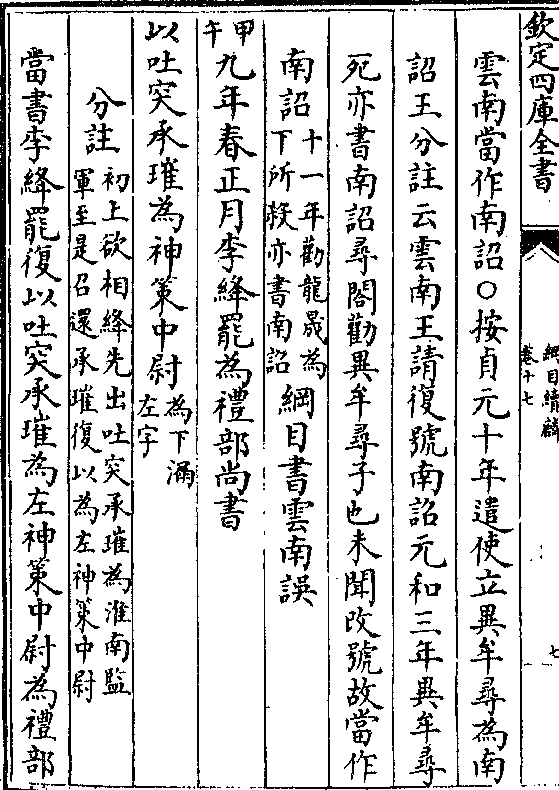 欽定四庫全書
綱目續麟
卷十七
七
雲南當作南詔○按貞元十年遣使立異牟尋為南
詔王分註云雲南王請復號南詔元和三年異牟尋
死亦書南詔尋閣勸異牟尋子也未聞改號故當作
南詔十一年勸龍晟為
下所殺亦書南詔綱目書雲南誤
甲午九年春正月李絳罷為禮部尚書
以吐突承璀為神策中尉為下漏
左字
分註初上欲相絳先出吐突承璀為淮南監
軍至是召還承璀復以為左神策中尉
當書李絳罷復以吐突承璀為左神策中尉為禮部